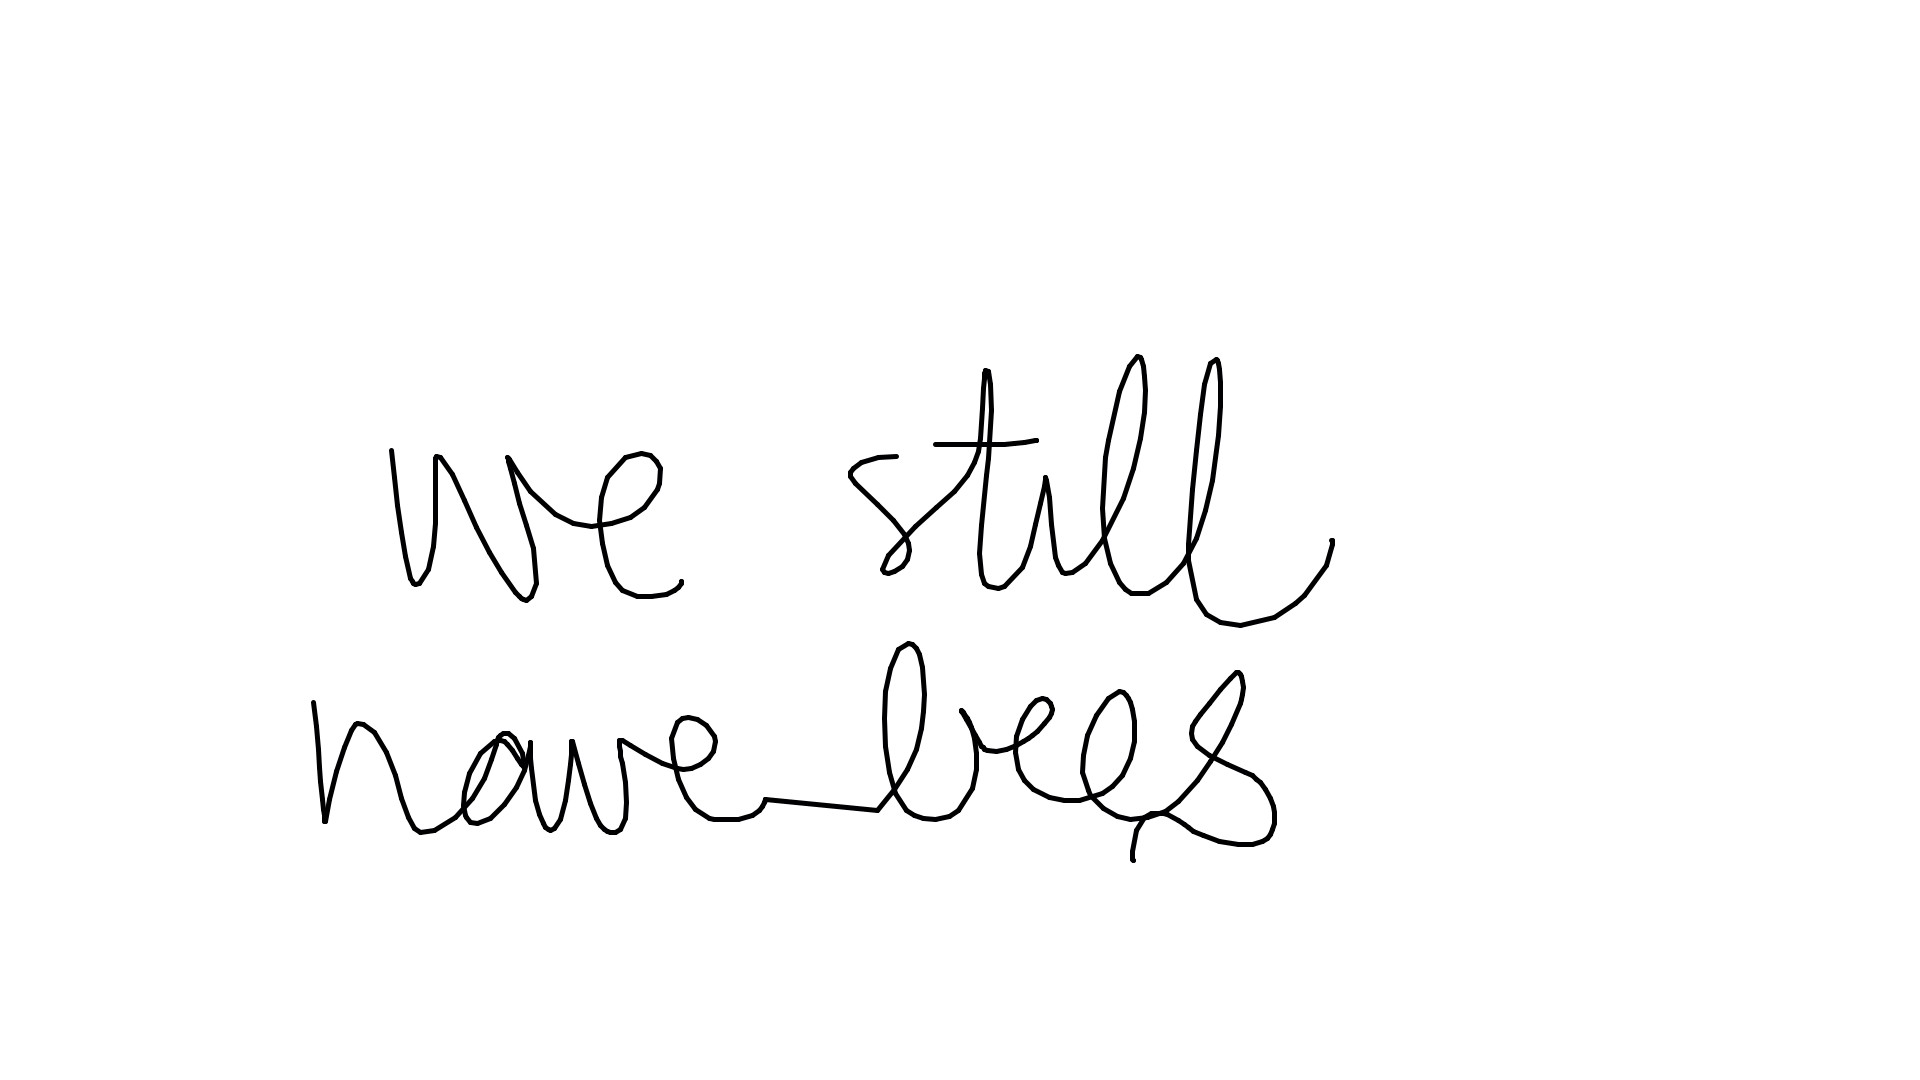 we still
have bees